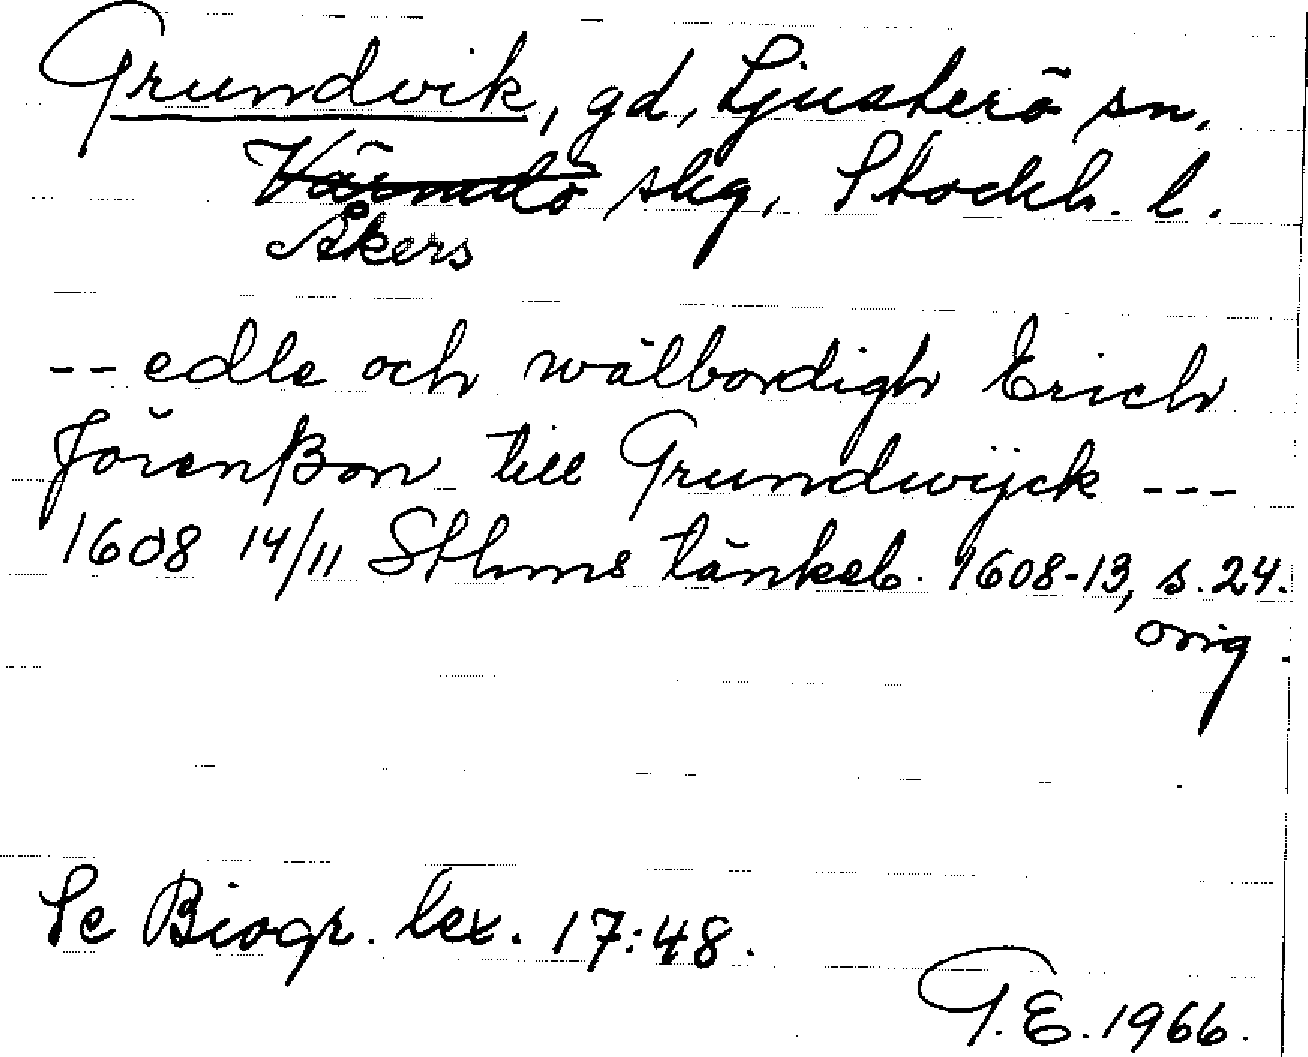 Grundvik, gd, Ljusterö sn,
Värmdö skg, Stockh. l.
Åkers
-- edle och wälbordigh Erich
Jörenßon till Grundwijck ---
1608 14/11 Sthms tänkeb. 1608-13, s. 24.
orig.
Se Biogr. lex. 17:48.
G.E. 1966.